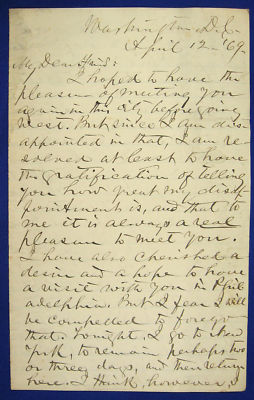 Washington D.C.
April 12 - '69.
My Dear Friend:
I hoped to have the
pleasure of meeting you
again in this city, before going
west. But since I am dis-
appointed in that, I am re-
solved at least to have
the gratification of telling
you how great my disap-
pointment is, and that to
me it is always a real
pleasure to meet you.
I have also cherished a
desire and a hope to have
a visit with you in Phil-
adelphia. But I fear I will
be compelled to forego
that. Tonight, I go to New
York, to remain perhaps two
or three days, and then return
here. I think, however, I